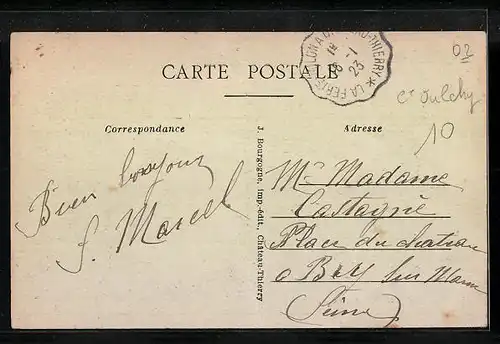 CARTE POSTALE
LA FERTÉ-MILON A CHATEAU-THIERRY
18 -1
23
02
Ct Oulchy
10
Correspondance
Adresse
Bien bonjour
f. Marcel
J. Bourgogne, imp.-édit., Château-Thierry
Mr Madame
Castagné
Place du
a Bry sur Marne
Seine